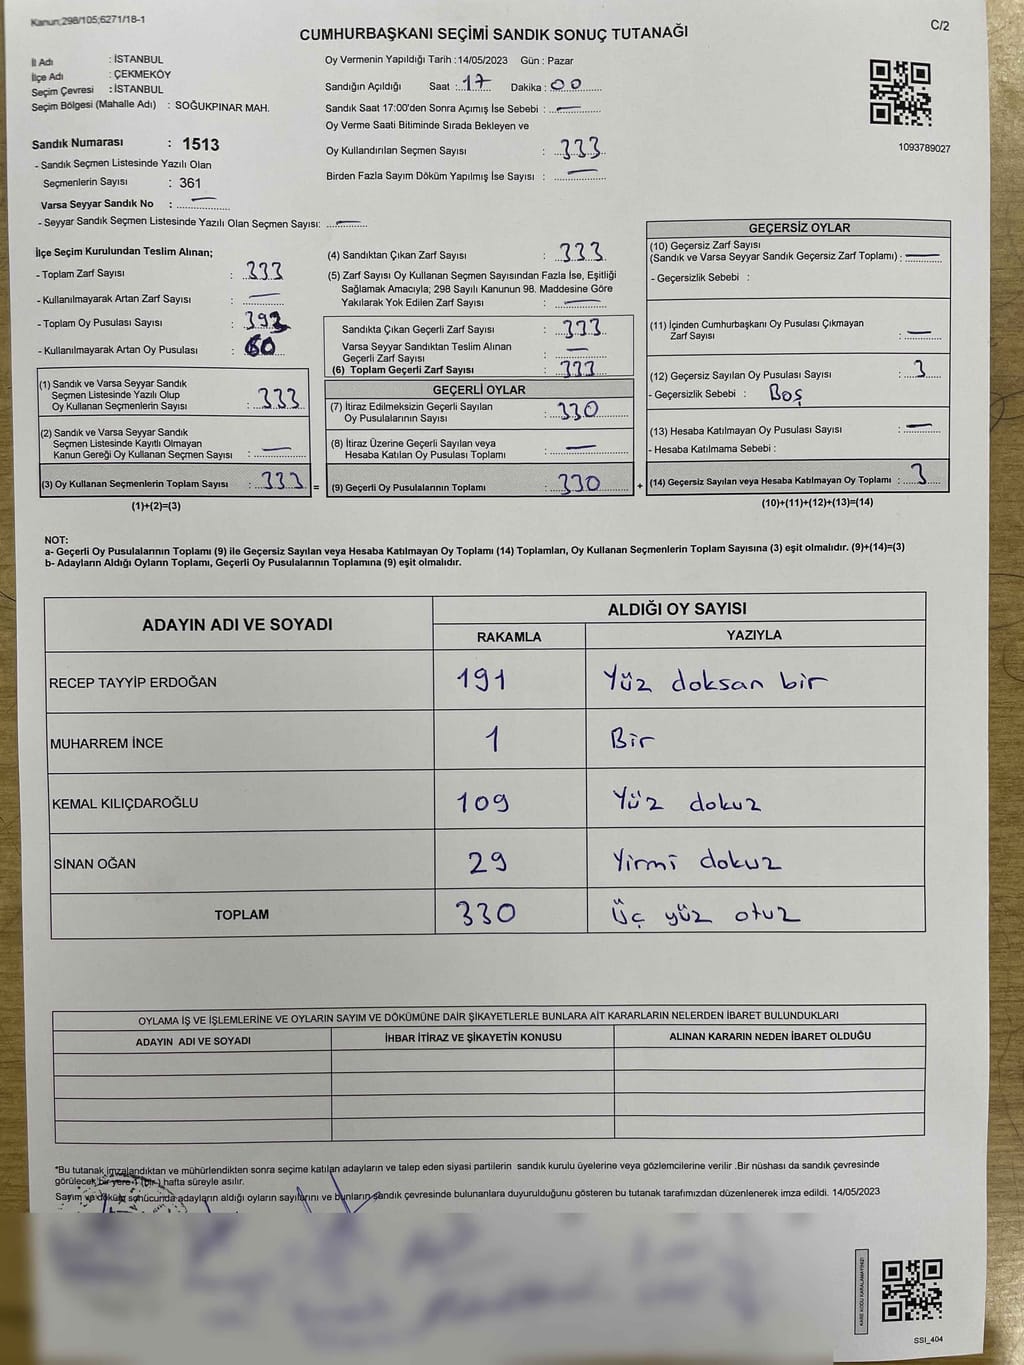 Kanun;298/105;6271/18-1
C/2
CUMHURBAŞKANI SEÇİMİ SANDIK SONUÇ TUTANAĞI
İl Adı : İSTANBUL
İlçe Adı : ÇEKMEKÖY
Seçim Çevresi : İSTANBUL
Seçim Bölgesi (Mahalle Adı) : SOĞUKPINAR MAH.
Oy Vermenin Yapıldığı Tarih :14/05/2023 Gün : Pazar
Sandığın Açıldığı Saat : 17 Dakika : 00
Sandık Saat 17:00'den Sonra Açımış İse Sebebi : —
Oy Verme Saati Bitiminde Sırada Bekleyen ve
Oy Kullandırılan Seçmen Sayısı : 333
Birden Fazla Sayım Döküm Yapılmış İse Sayısı : —
1093789027
Sandık Numarası : 1513
- Sandık Seçmen Listesinde Yazılı Olan
Seçmenlerin Sayısı : 361
Varsa Seyyar Sandık No : —
- Seyyar Sandık Seçmen Listesinde Yazılı Olan Seçmen Sayısı: —
İlçe Seçim Kurulundan Teslim Alınan;
- Toplam Zarf Sayısı : 333
- Kullanılmayarak Artan Zarf Sayısı : —
- Toplam Oy Pusulası Sayısı : 393
- Kullanılmayarak Artan Oy Pusulası : 60
(1) Sandık ve Varsa Seyyar Sandık
Seçmen Listesinde Yazılı Olup
Oy Kullanan Seçmenlerin Sayısı : 333
(2) Sandık ve Varsa Seyyar Sandık
Seçmen Listesinde Kayıtlı Olmayan
Kanun Gereği Oy Kullanan Seçmen Sayısı : —
(3) Oy Kullanan Seçmenlerin Toplam Sayısı : 333 =
(1)+(2)=(3)
(4) Sandıktan Çıkan Zarf Sayısı : 333
(5) Zarf Sayısı Oy Kullanan Seçmen Sayısından Fazla İse, Eşitliği
Sağlamak Amacıyla; 298 Sayılı Kanunun 98. Maddesine Göre
Yakılarak Yok Edilen Zarf Sayısı : —
Sandıkta Çıkan Geçerli Zarf Sayısı : 333
Varsa Seyyar Sandıktan Teslim Alınan
Geçerli Zarf Sayısı : —
(6) Toplam Geçerli Zarf Sayısı : 333
GEÇERLİ OYLAR
(7) İtiraz Edilmeksizin Geçerli Sayılan
Oy Pusulalarının Sayısı : 330
(8) İtiraz Üzerine Geçerli Sayılan veya
Hesaba Katılan Oy Pusulası Toplamı : —
(9) Geçerli Oy Pusulalarının Toplamı : 330 +
GEÇERSİZ OYLAR
(10) Geçersiz Zarf Sayısı
(Sandık ve Varsa Seyyar Sandık Geçersiz Zarf Toplamı) : —
- Geçersizlik Sebebi :
(11) İçinden Cumhurbaşkanı Oy Pusulası Çıkmayan
Zarf Sayısı : —
(12) Geçersiz Sayılan Oy Pusulası Sayısı : 3
- Geçersizlik Sebebi : Boş
(13) Hesaba Katılmayan Oy Pusulası Sayısı : —
- Hesaba Katılmama Sebebi :
(14) Geçersiz Sayılan veya Hesaba Katılmayan Oy Toplamı : 3
(10)+(11)+(12)+(13)=(14)
NOT:
a- Geçerli Oy Pusulalarının Toplamı (9) ile Geçersiz Sayılan veya Hesaba Katılmayan Oy Toplamı (14) Toplamları, Oy Kullanan Seçmenlerin Toplam Sayısına (3) eşit olmalıdır. (9)+(14)=(3)
b- Adayların Aldığı Oyların Toplamı, Geçerli Oy Pusulalarının Toplamına (9) eşit olmalıdır.
ADAYIN ADI VE SOYADI
ALDIĞI OY SAYISI
RAKAMLA YAZIYLA
RECEP TAYYİP ERDOĞAN 191 Yüz doksan bir
MUHARREM İNCE 1 Bir
KEMAL KILIÇDAROĞLU 109 Yüz dokuz
SİNAN OĞAN 29 Yirmi dokuz
TOPLAM 330 Üç yüz otuz
OYLAMA İŞ VE İŞLEMLERİNE VE OYLARIN SAYIM VE DÖKÜMÜNE DAİR ŞİKAYETLERLE BUNLARA AİT KARARLARIN NELERDEN İBARET BULUNDUKLARI
ADAYIN ADI VE SOYADI İHBAR İTİRAZ VE ŞİKAYETİN KONUSU ALINAN KARARIN NEDEN İBARET OLDUĞU
*Bu tutanak imzalandıktan ve mühürlendikten sonra seçime katılan adayların ve talep eden siyasi partilerin sandık kurulu üyelerine veya gözlemcilerine verilir .Bir nüshası da sandık çevresinde
görülecek bir yere 1 (bir ) hafta süreyle asılır.
Sayım ve döküm sonucunda adayların aldığı oyların sayılarını ve bunların sandık çevresinde bulunanlara duyurulduğunu gösteren bu tutanak tarafımızdan düzenlenerek imza edildi. 14/05/2023
KARE KODU KARALAMAYINIZ!
SSI_404